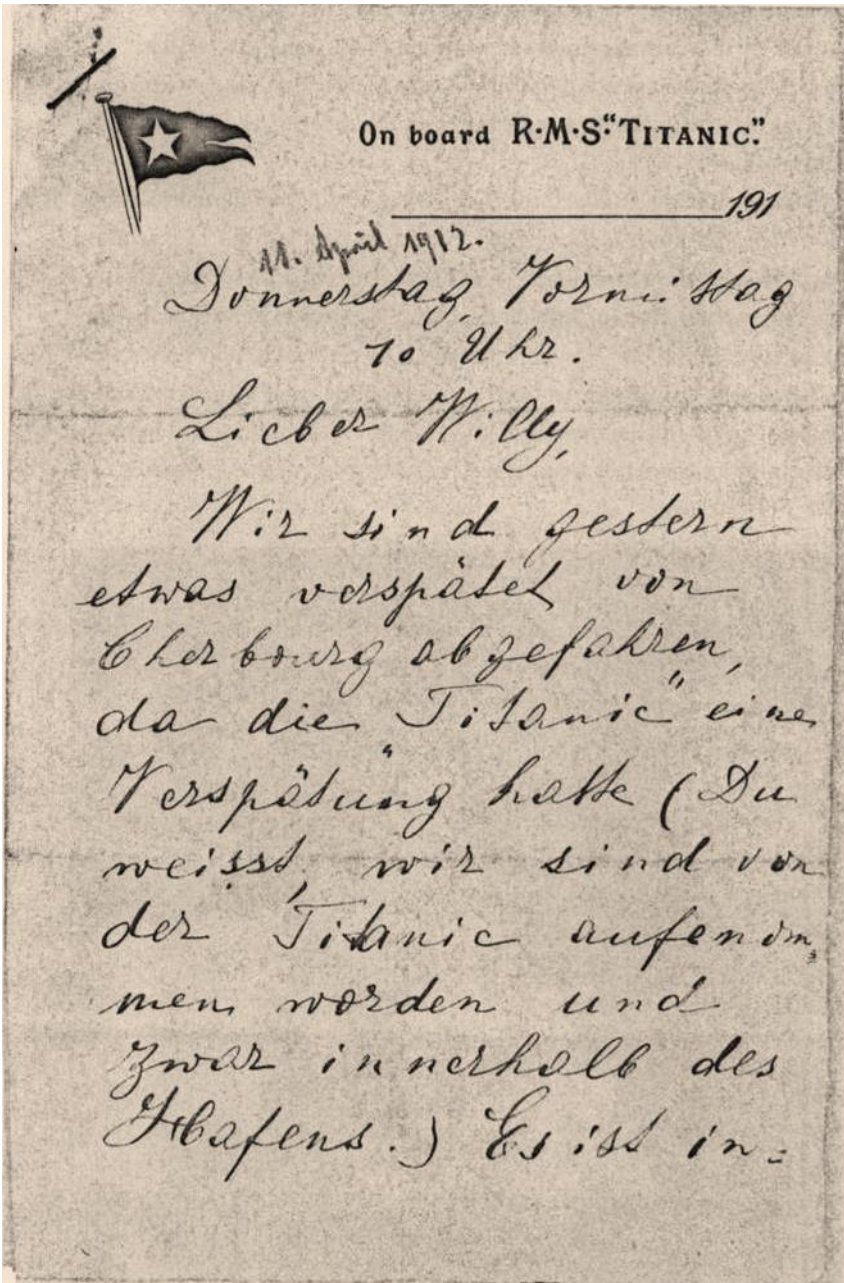 On board R·M·S·"TITANIC".
191
11. April 1912.
Donnerstag, Vormittag
10 Uhr.
Lieber Willy,
Wir sind gestern
etwas verspätet von
Cherbourg abgefahren,
da die „Titanic" eine
Verspätung hatte (Du
weisst, wir sind von
der Titanic aufenom-
men worden und
zwar innerhalb des
Hafens.) Es ist in-